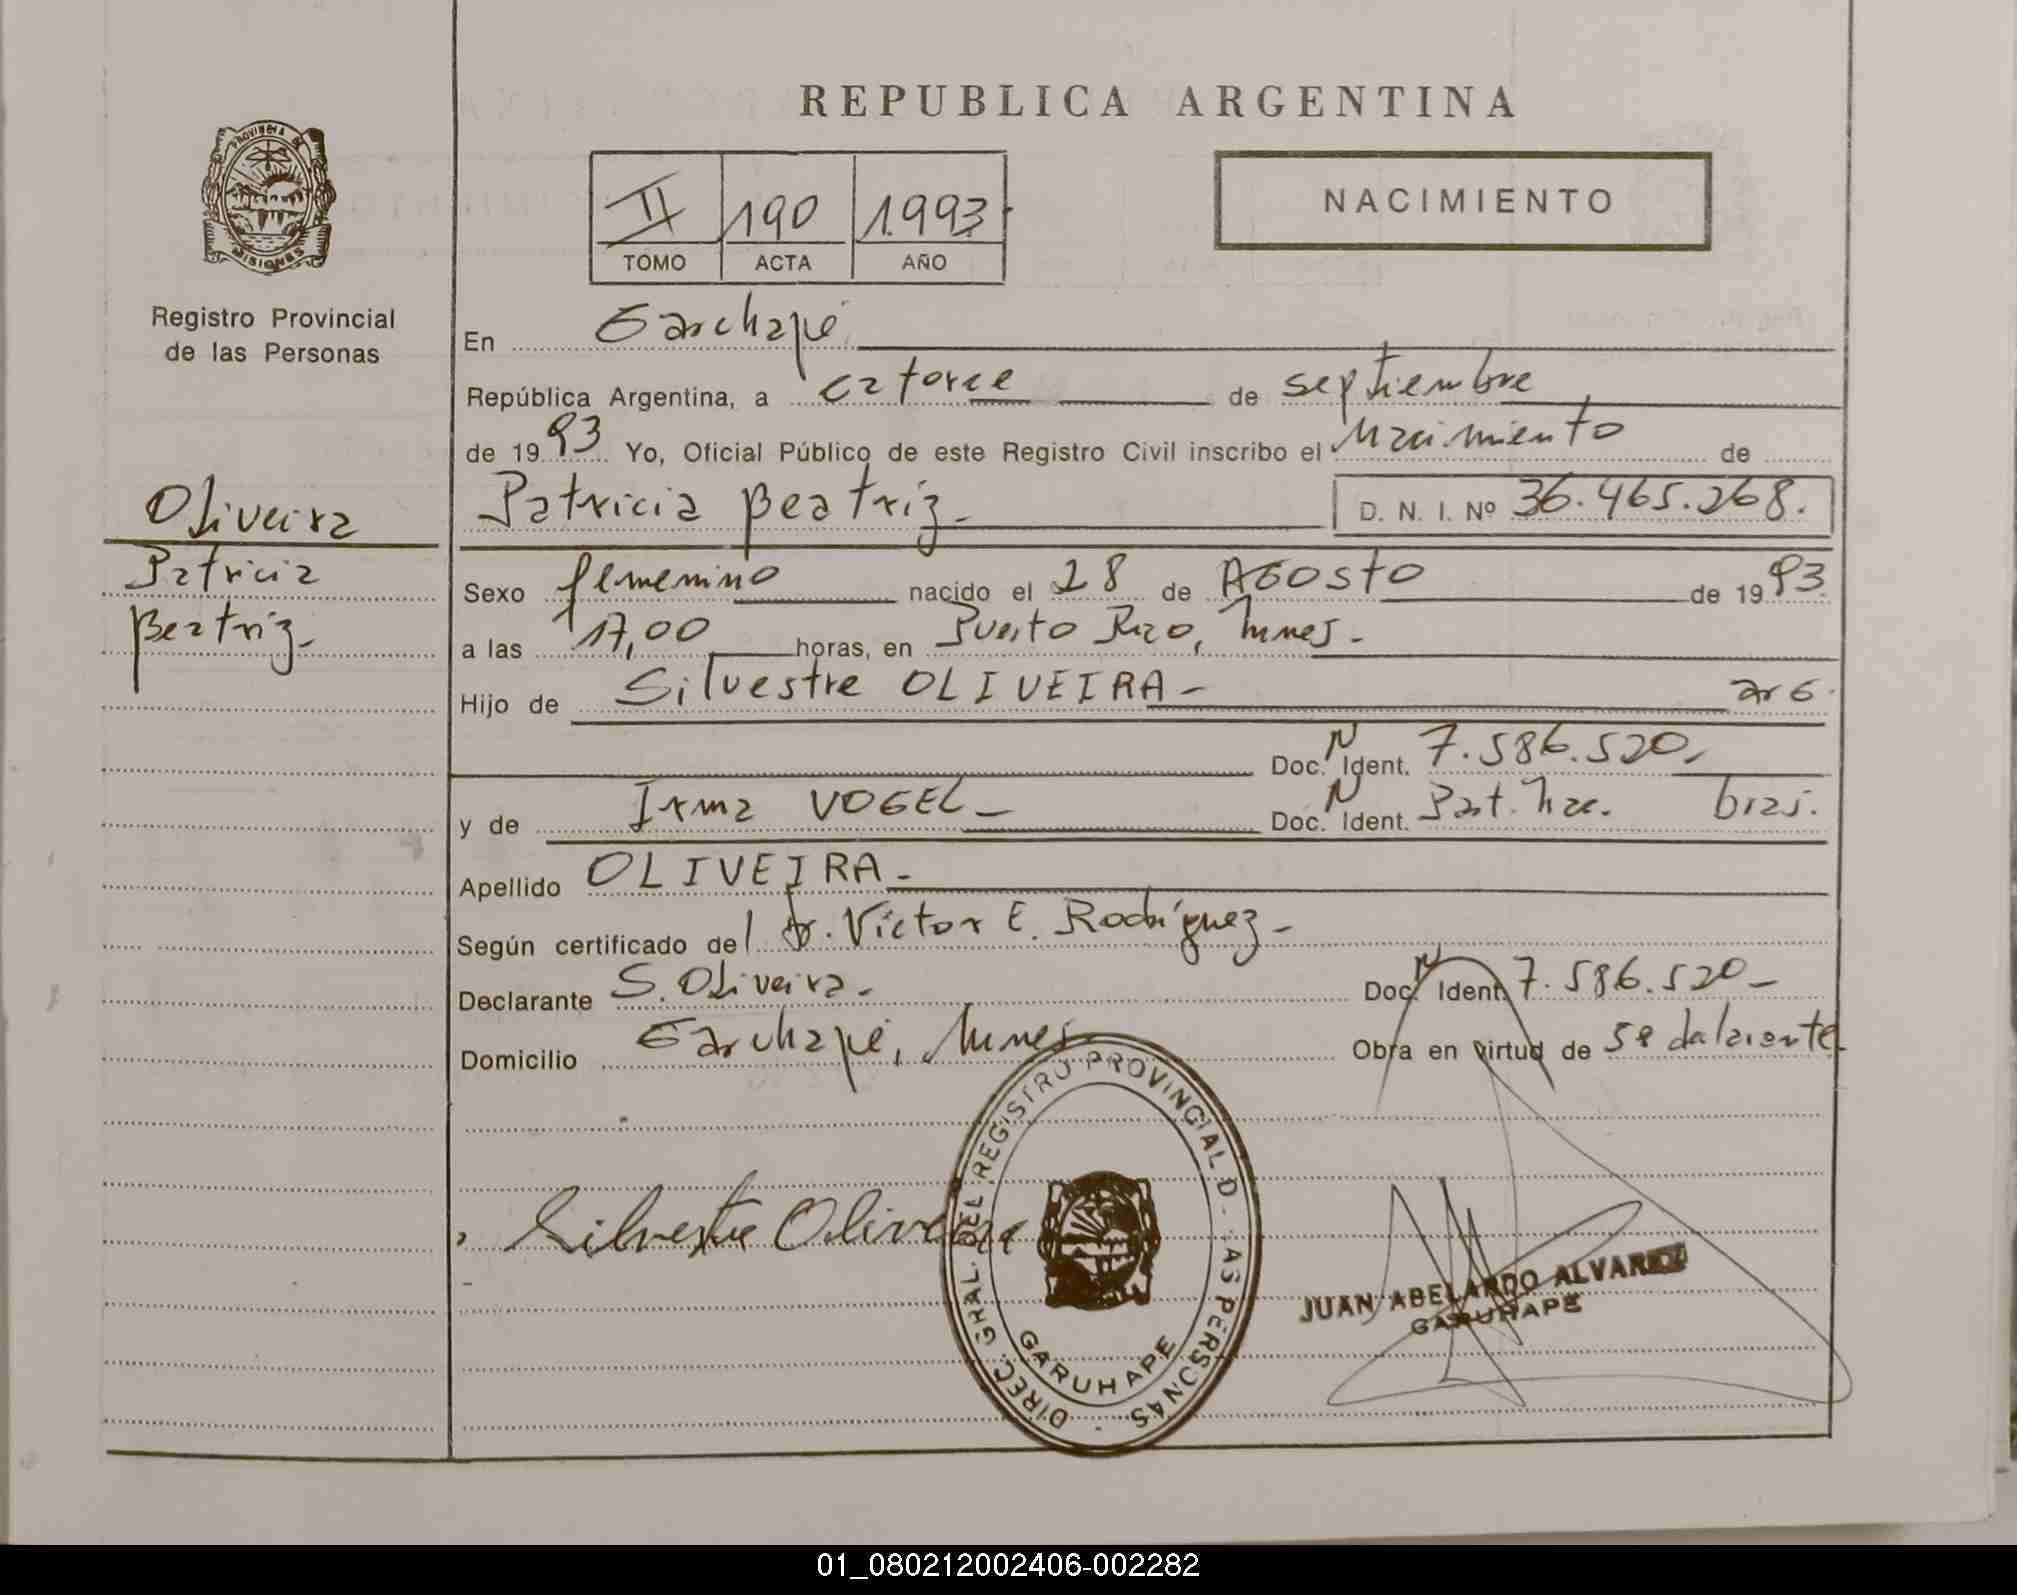 REPUBLICA ARGENTINA
PROVINCIA DE
MISIONES
Registro Provincial
de las Personas
II 190 1.993
TOMO ACTA AÑO
NACIMIENTO
Oliveira
Patricia
Beatriz.-
En Garuhapé
República Argentina, a catorce de septiembre
de 1993 Yo, Oficial Público de este Registro Civil inscribo el nacimiento de
Patricia Beatriz.- D. N. I. Nº 36.465.268.
Sexo femenino nacido el 28 de AGOSTO de 1993
a las 17,00 horas, en Puerto Rico, Mnes.-
Hijo de Silvestre OLIVEIRA- arg.
Doc. N Ident. 7.586.520,
y de Irma VOGEL- Doc. N Ident. Part. Nac. bras.
Apellido OLIVEIRA-
Según certificado del Dr. Víctor E. Rodríguez-
Declarante S. Oliveira- Doc. N Ident. 7.586.520-
Domicilio Garuhapé, Mnes.- Obra en virtud de se declarante
Silvestre Oliveira
DIREC. GRAL. DEL REGISTRO PROVINCIAL D AS PERSONAS
GARUHAPE
JUAN ABELARDO ALVAREZ
GARUHAPE
01_080212002406-002282